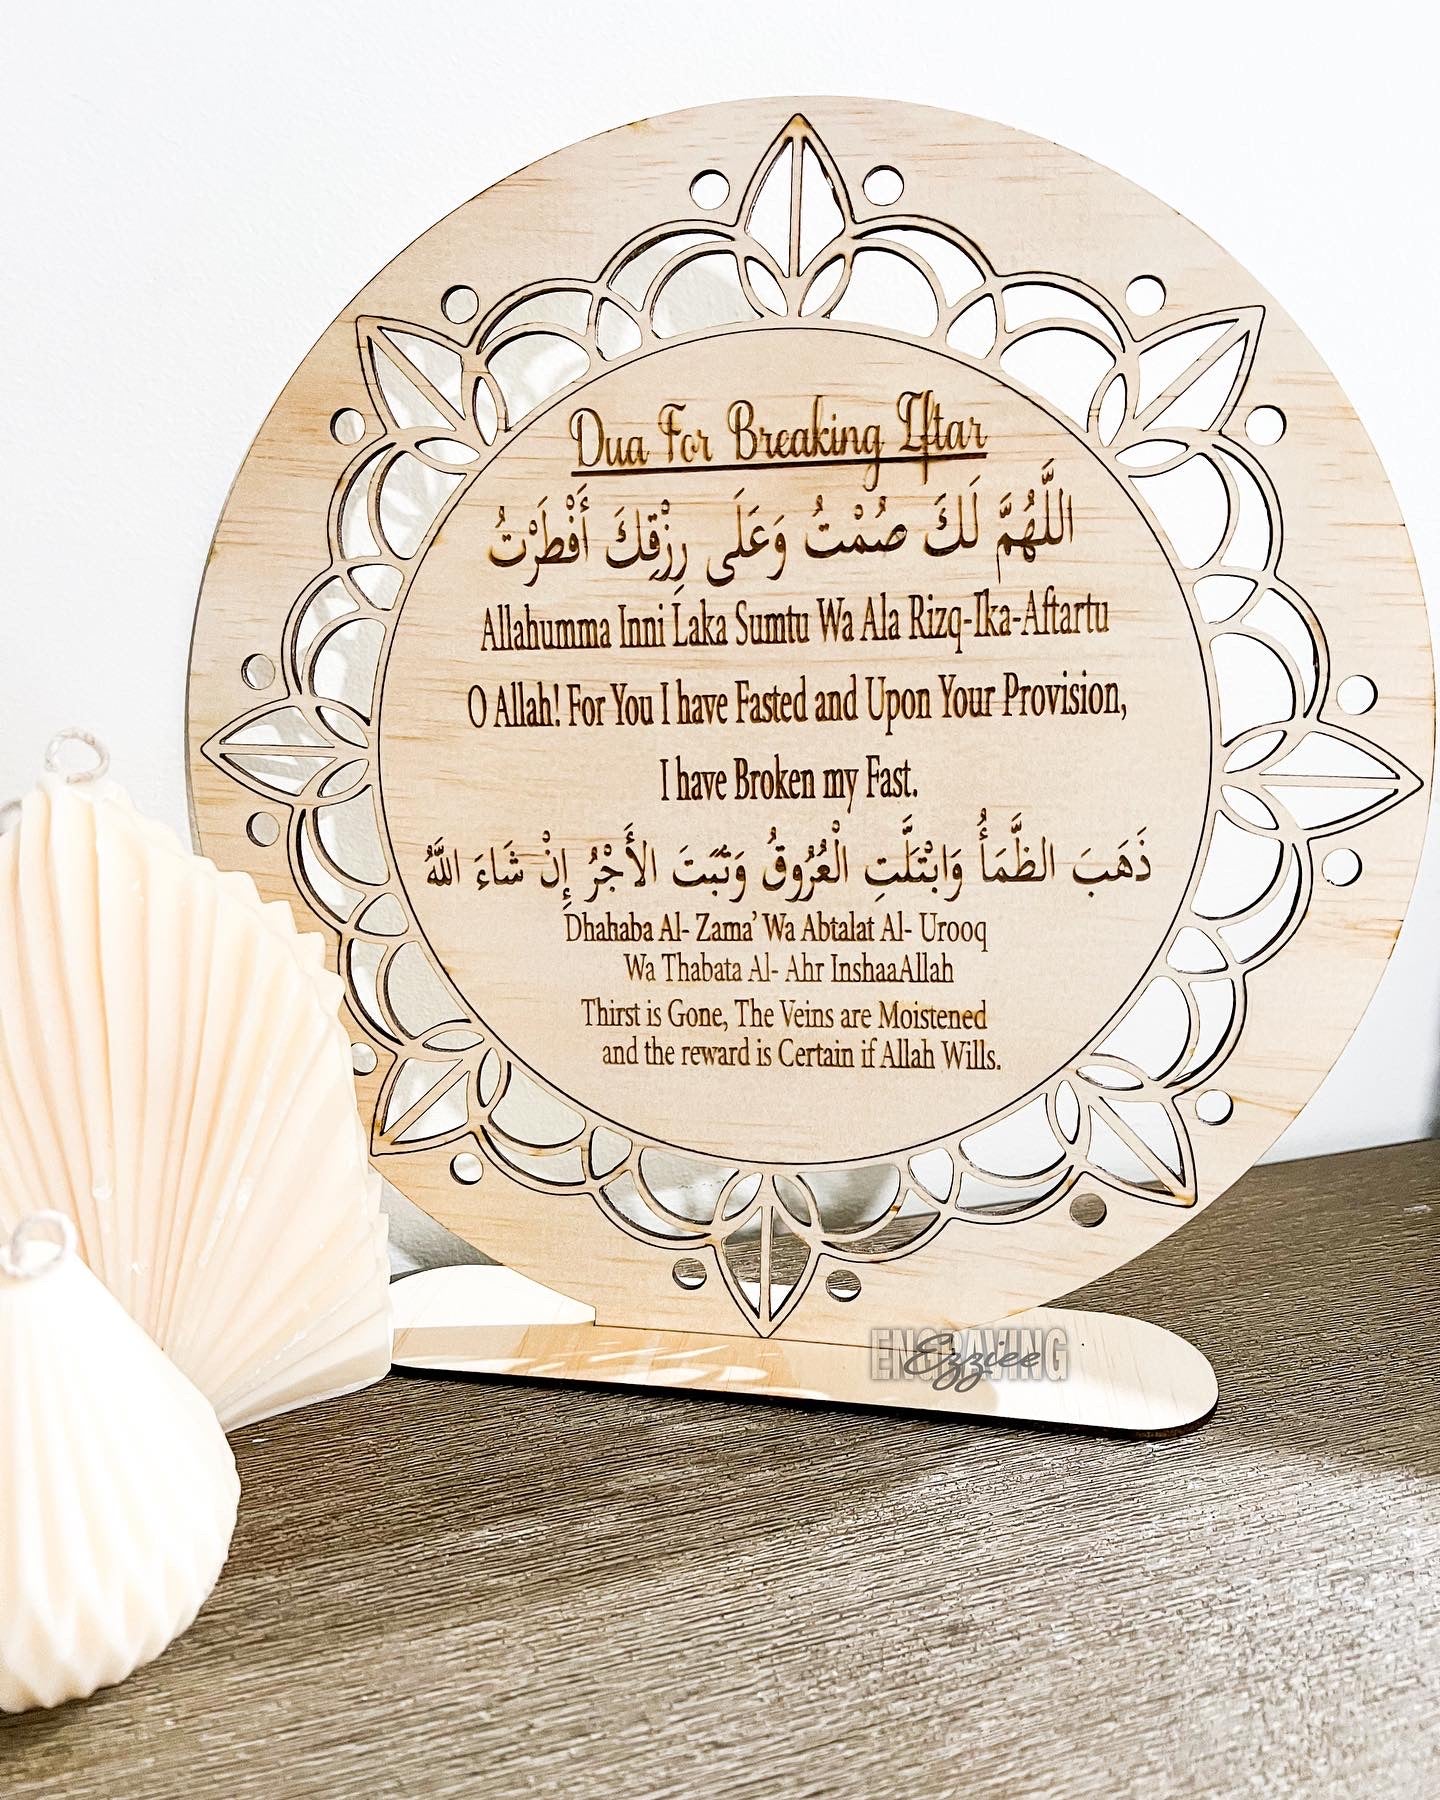 Dua For Breaking Iftar
اللَّهُمَّ لَكَ صُمْتُ وَعَلَى رِزْقِكَ أَفْطَرْتُ
Allahumma Inni Laka Sumtu Wa Ala Rizq-Ika-Aftartu
O Allah! For You I have Fasted and Upon Your Provision,
I have Broken my Fast.
ذَهَبَ الظَّمَأُ وَابْتَلَّتِ الْعُرُوقُ وَثَبَتَ الأَجْرُ إِنْ شَاءَ اللَّهُ
Dhahaba Al- Zama’ Wa Abtalat Al- Urooq
Wa Thabata Al- Ahr InshaaAllah
Thirst is Gone, The Veins are Moistened
and the reward is Certain if Allah Wills.
ENGRAVING
Ezziee